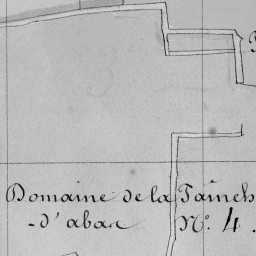 Domaine de la
-d'abac N.° 4.